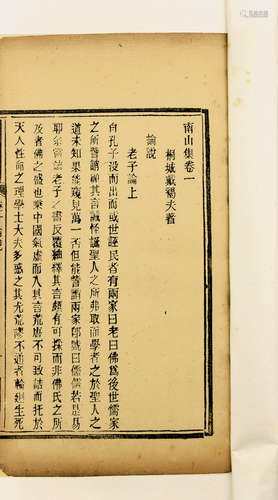 南山集卷一
桐城戴褐夫著
論說
老子論上
自孔子沒而出而或世誣民者有兩家曰老曰佛為後世儒家
之所訾謫顧其言誠怪誕聖人之所非取而學者之於聖人之
道未知果能窺見萬一否但能訾謫兩家即號曰儒儒若是易
耶余嘗讀老子之書反覆紬繹其言頗有可採而非佛氏之所
及者佛之盛也乘中國氣虛而入其言荒唐不可致詰而托於
天人性命之理學士大夫多惑之其尤荒謬不通者輪廻生死